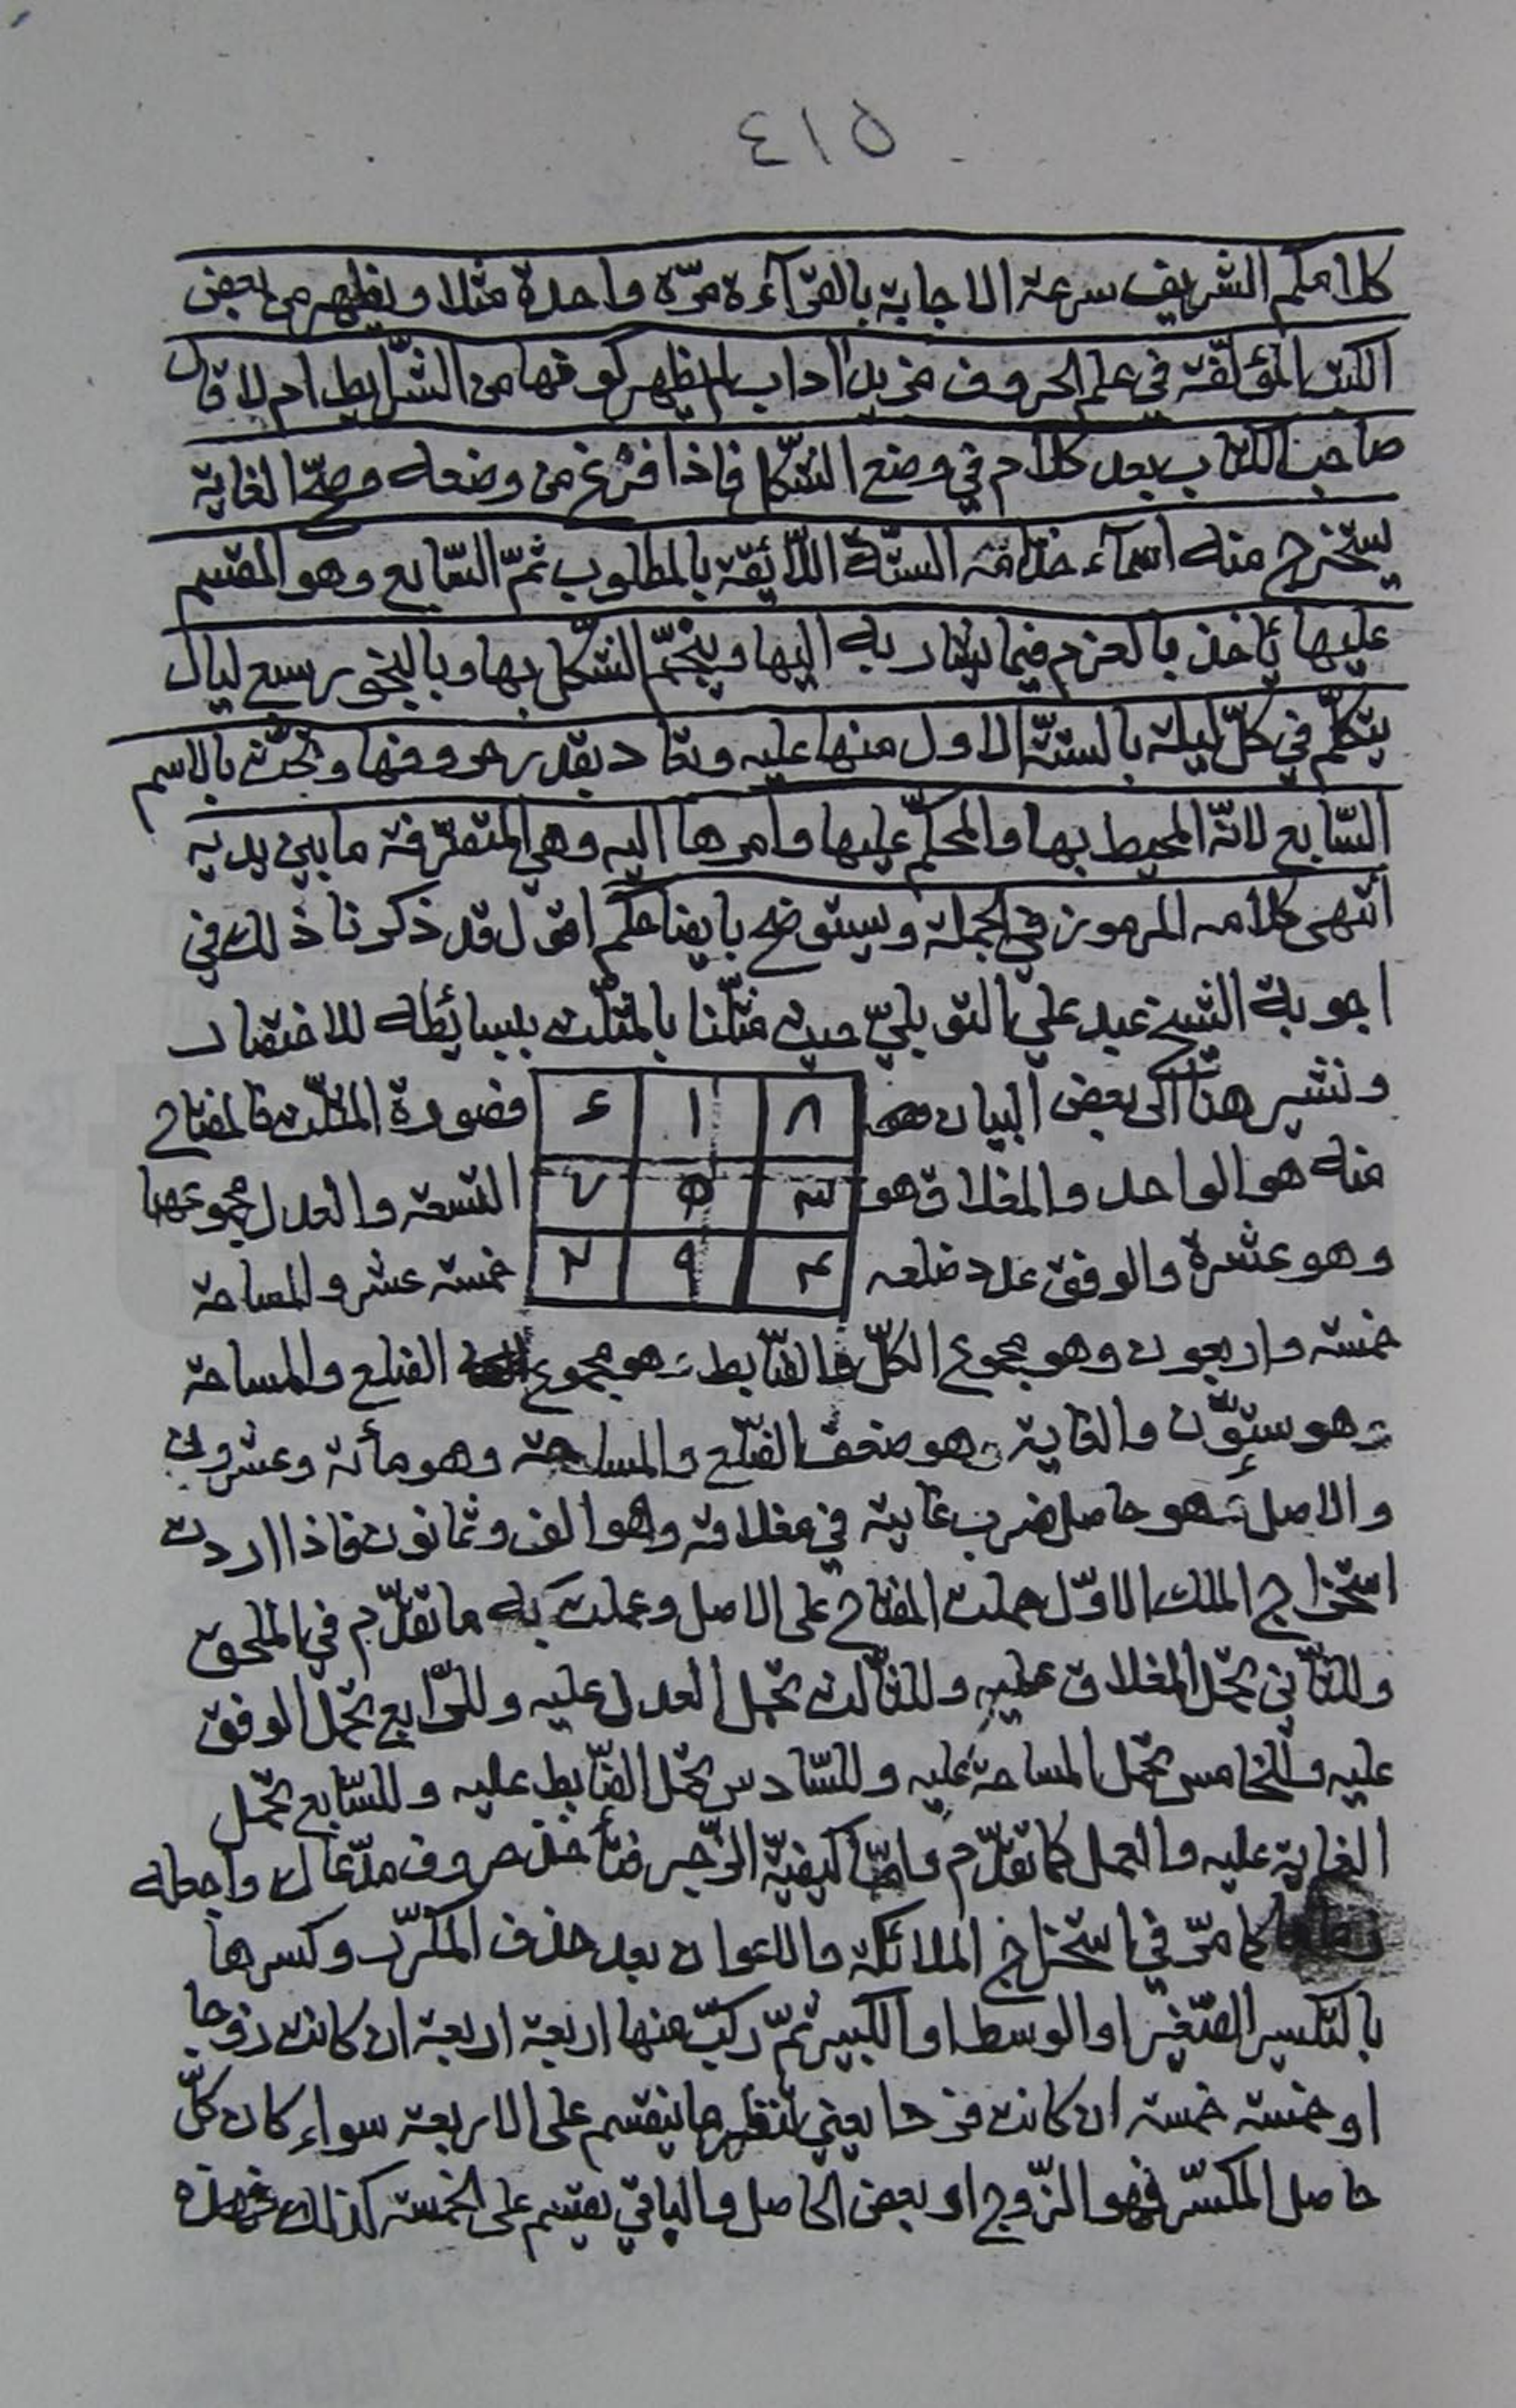 ٤١٥
كلامكم الشريف سرعة الاجابة بالقرآءة مرّة واحدة مثلا ويظهر من بعض
الكتب المؤلّفة في علم الحروف مزيد اداب لم يظهر كونها من الشّرايط ام لا قال
صاحب الكتاب بعد كلام في وضع الشكل فاذا فرغ من وضعه وصحّ الغاية
يستخرج منه اسمآء خدّامه الستّة اللّائقة بالمطلوب ثمّ السّابع وهو المقسم
عليها يأخذ بالعزم فيما ينادي به اليها وينجّم الشكل بها وبالبخور سبع ليال
يتكلّم في كلّ ليلة بالستّة الاول منها عليه وتعاد بقدر حروفها وتحثّ بالاسم
السّابع لانّه المحيط بها والمحكّم عليها وامرها اليه وهي المتصرّفة ما بين يديه
انتهى كلامه المرموز في الجملة وسيتوضح بايضاحكم اقول قد ذكرنا ذلك في
اجوبة الشيخ عبد علي التوبليّ حيث مثّلنا بالمثلّث ببسائطه للاختصار
ونشير هنا الى بعض البيان ٨ ١ ٦ فصورة المثلّث فالمفتاح
منه هو الواحد والمغلاق هو ٣ ٥ ٧ التسعة والعدل مجموعهما
وهو عشرة والوفق عدد ضلعه ٤ ٩ ٢ خمسة عشر والمساحة
خمسة واربعون وهو مجموع الكلّ والضّابط هو مجموع الضلع والمساحة
وهو ستّون والغاية وهو ضعف الضّلع والمساحة وهو مأئة وعشرون
والاصل هو حاصل ضرب غايته في مغلاقه وهو الف وثمانون فاذا اردت
استخراج الملك الاوّل حملت المفتاح على الاصل وعملت به ما تقدّم في الملحق
وللثّاني تحمل المغلاق عليه وللثّالث تحمل العدل عليه وللرّابع تحمل الوفق
عليه وللخامس تحمل المساحة عليه وللسّادس تحمل الضّابط عليه وللسّابع تحمل
الغاية عليه والعمل كما تقدّم وامّا كيفيّة الزّجر فتأخذ حروف مدّعاك واجعله
كما مرّ في استخراج الملائكة والاعوان بعد حذف المكرّر وكسرها
بالتكسير الصّغير او الوسط او الكبير ثمّ ركّب منها اربعة اربعة ان كانت زوجا
او خمسة خمسة ان كانت فردا يعني تنظر ما ينقسم على الاربعة سواء كان كلّ
حاصل المكسّر فهو الزّوج او بعض الحاصل والباقي يقسّم على الخمسة كذلك فهذه